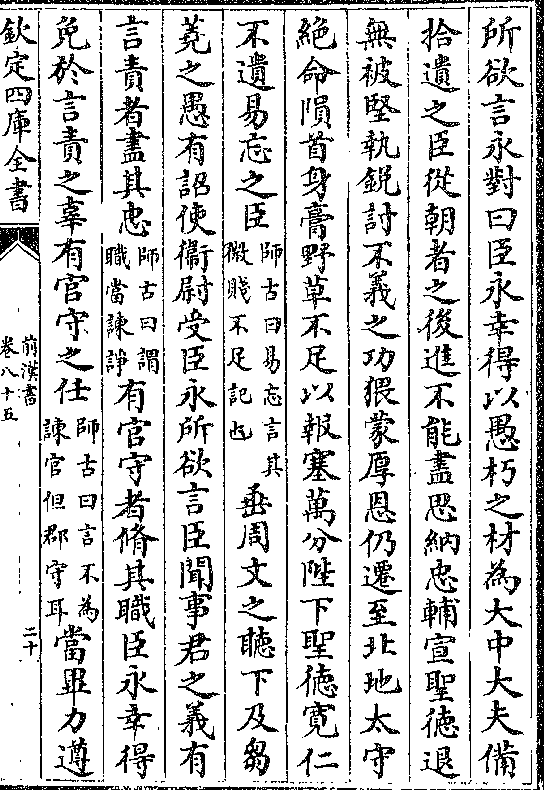 所欲言永對曰臣永幸得以愚朽之材為大中大夫備
拾遺之臣從朝者之後進不能盡思納忠輔宣聖德退
無被堅執銳討不義之功猥蒙厚恩仍遷至北地太守
絶命隕首身膏野草不足以報塞萬分陛下聖德寛仁
不遺易忘之臣師古曰易忘言其微賤不足記也垂周文之聽下及芻
蕘之愚有詔使衞尉受臣永所欲言臣聞事君之義有
言責者盡其忠師古曰謂職當諫諍有官守者脩其職臣永幸得
免於言責之辜有官守之任師古曰言不為諫官但郡守耳當畢力遵
欽定四庫全書
前漢書
卷八十五
二十